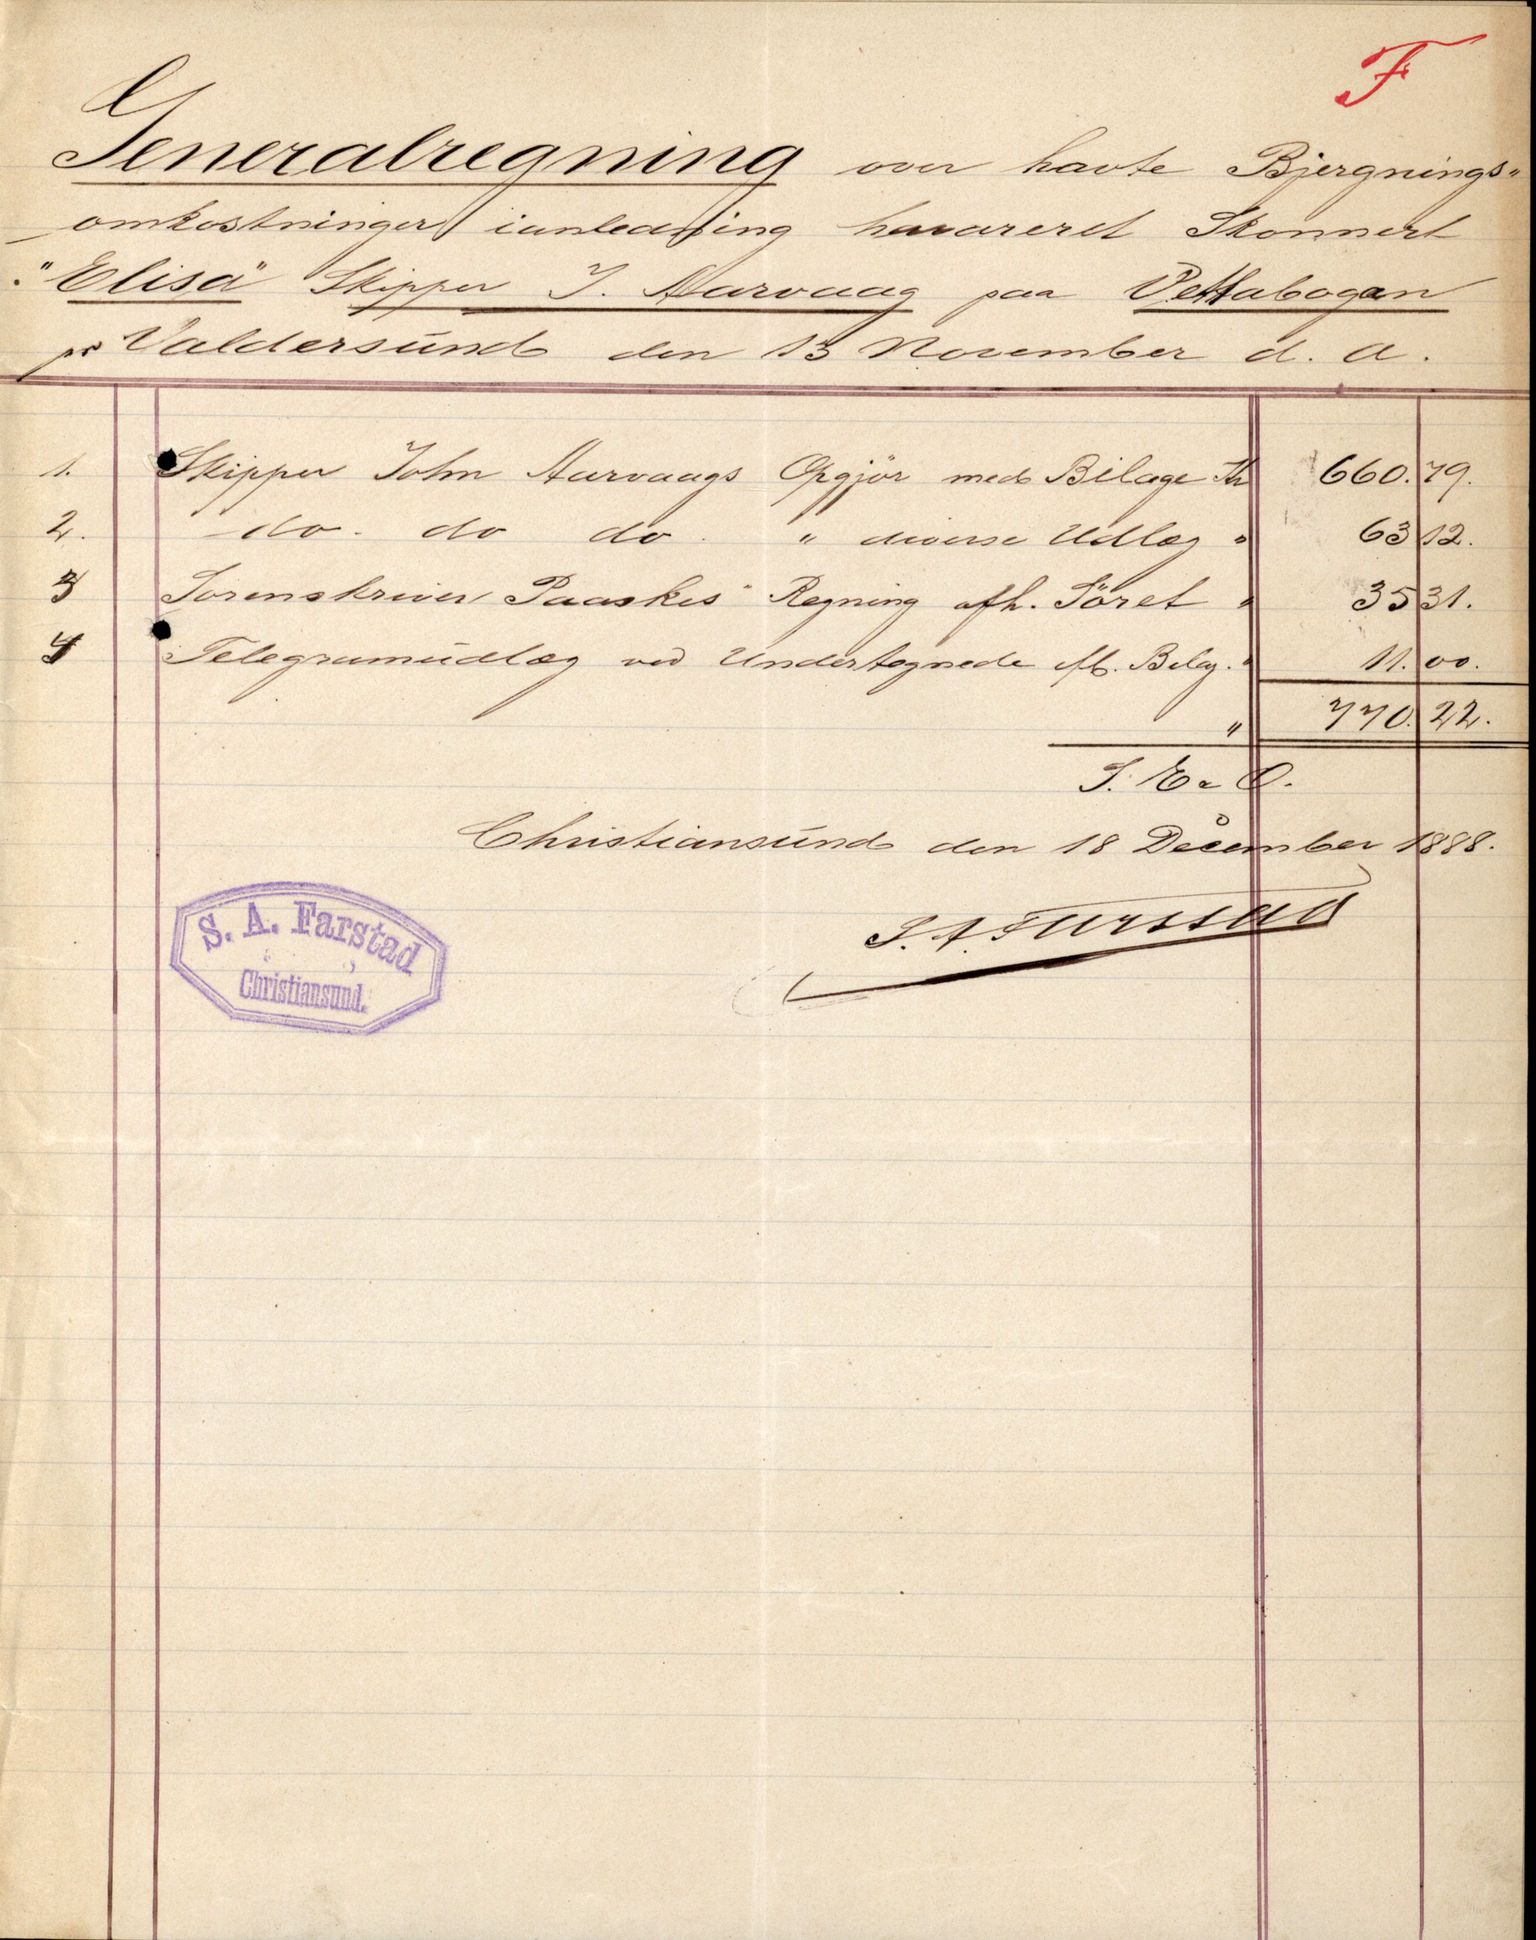 F
Generalregning over havte Bjergnings-
omkostninger ianledning havareret Skonnert
"Elisa" Skipper J. Aarvaag paa Vettabogen
pr Valdersund den 13 November d. a.
1. Skipper John Aarvaags Opgjör med Bilage Kr 660.79.
2. do. do do. " diverse Udlæg " 63 12.
3 Sorenskriver Paaskes Regning afh. Söret " 35 31.
4 Telegramudlæg ved Undertegnede efl. Bilag. " 11.00.
" 770.22.
S. E & O.
Christiansund den 18 December 1888.
S. A. Farstad
S. A. Farstad
Christiansund.